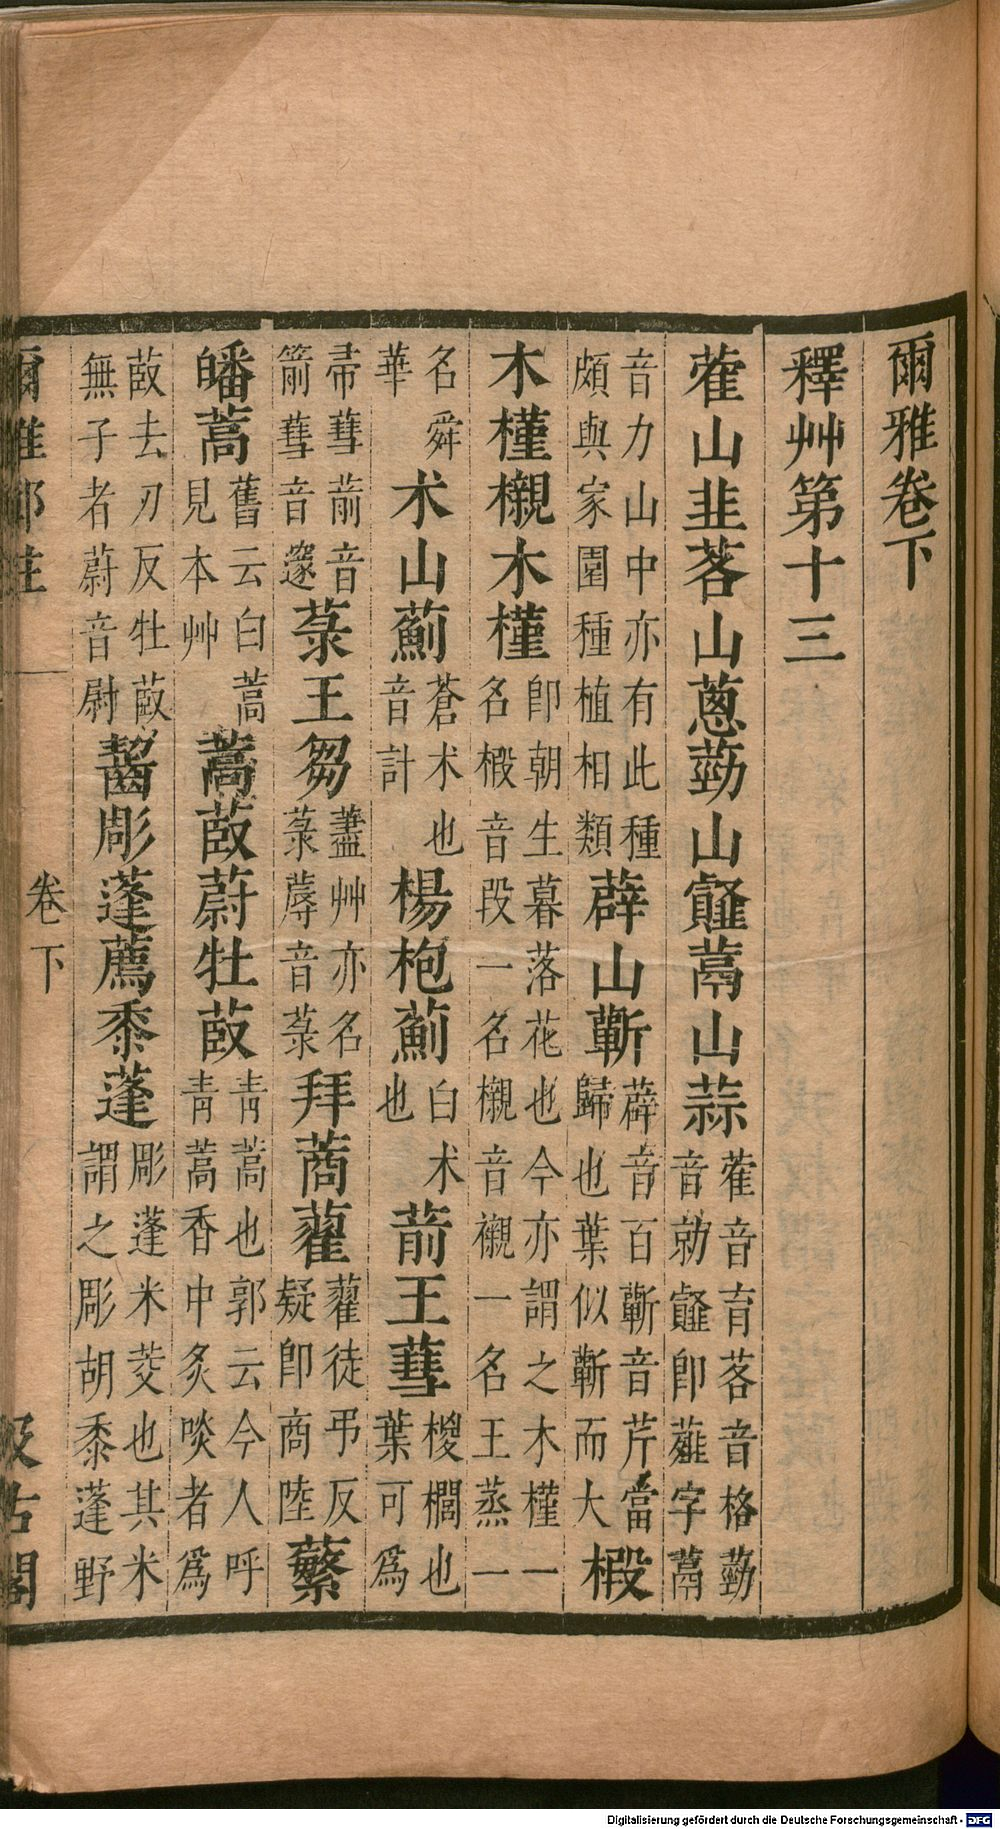 爾雅卷下
釋艸第十三
蒮山韭茖山蔥葝山䪥蒚山蒜蒮音育茖音格葝音勍䪥即薤字蒚
音力山中亦有此種頗與家園種植相類薜山蘄薜音百蘄音芹當歸也葉似蘄而大椴
木槿櫬木槿卽朝生暮落花也今亦謂之木槿一名椴音段一名櫬音襯一名王蒸一
名舜華术山薊蒼术也音計楊枹薊白术也葥王彗椶櫚也葉可為
帚彗葥音箭彗音邃菉王芻藎艸亦名菉蓐音菉拜蔏藋藋徒弔反疑卽商陸蘩
皤蒿舊云白蒿見本艸蒿菣蔚牡菣青蒿也郭云今人呼青蒿香中炙啖者為
菣去刃反牡菣無子者蔚音尉齧彫蓬薦黍蓬彫蓬米茭也其米謂之彫胡黍蓬野
爾雅鄭註
卷下
汲古閣
Digitalisierung gefördert durch die Deutsche Forschungsgemeinschaft - DFG